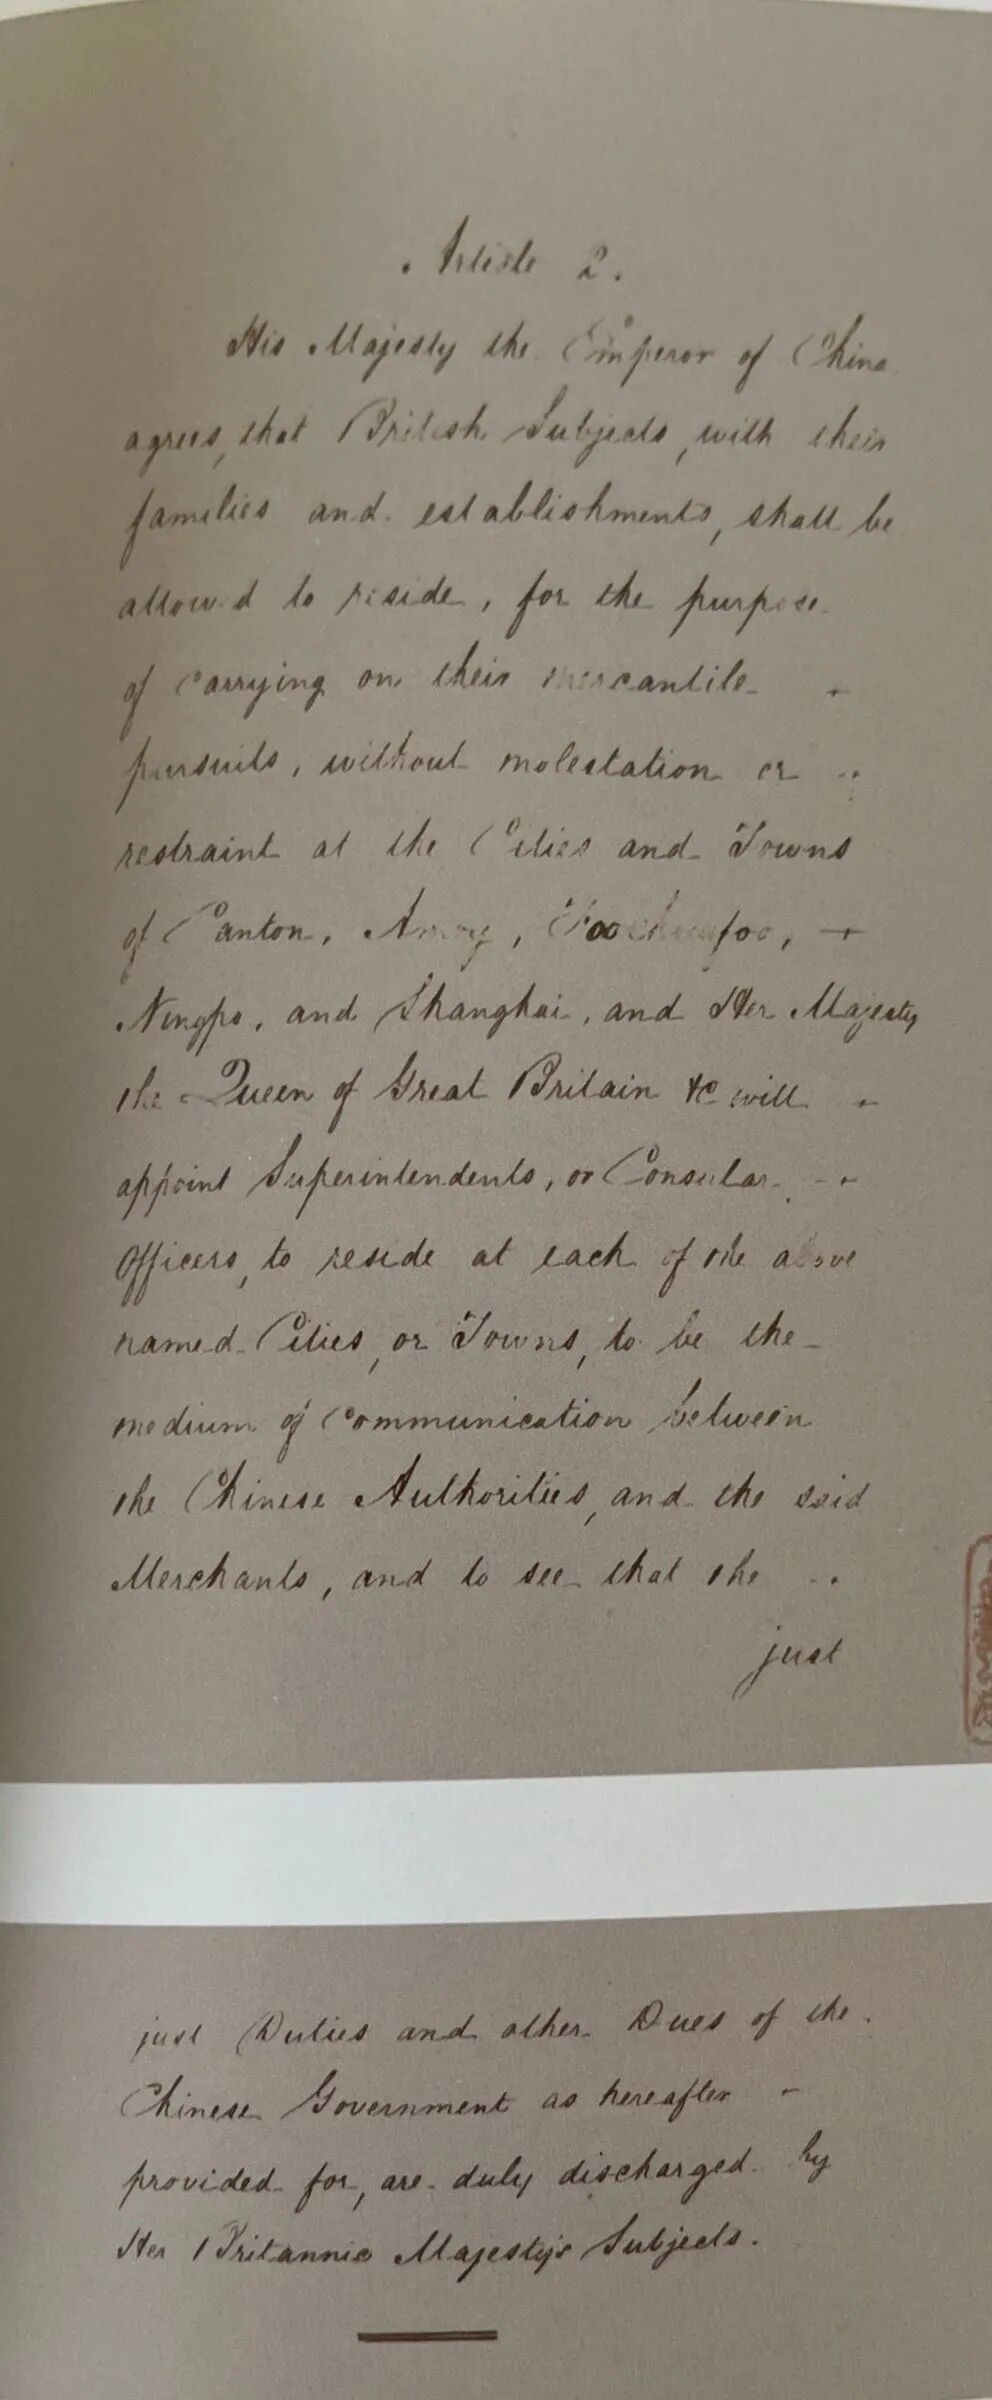 Article 2.
His Majesty the Emperor of China
agrees, that British Subjects, with their
families and establishments, shall be
allowed to reside, for the purpose
of carrying on their mercantile
pursuits, without molestation or
restraint at the Cities and Towns
of Canton, Amoy, Foochowfoo,
Ningpo, and Shanghai, and Her Majesty
the Queen of Great Britain &c will
appoint Superintendents, or Consular
Officers, to reside at each of the above
named Cities, or Towns, to be the
medium of communication between
the Chinese Authorities, and the said
Merchants, and to see that the
just
just Duties and other Dues of the
Chinese Government as hereafter
provided for, are duly discharged by
Her Britannic Majesty's Subjects.